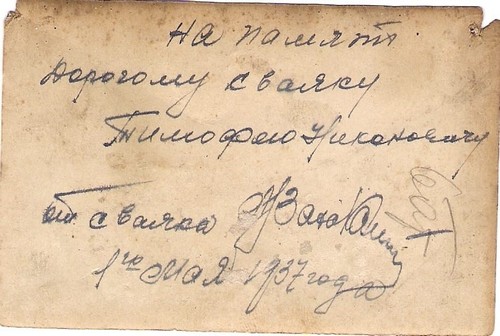 на память
Дорогому сваяку
Тимофею Никоновичу
от сваяка
1го мая 1937 года